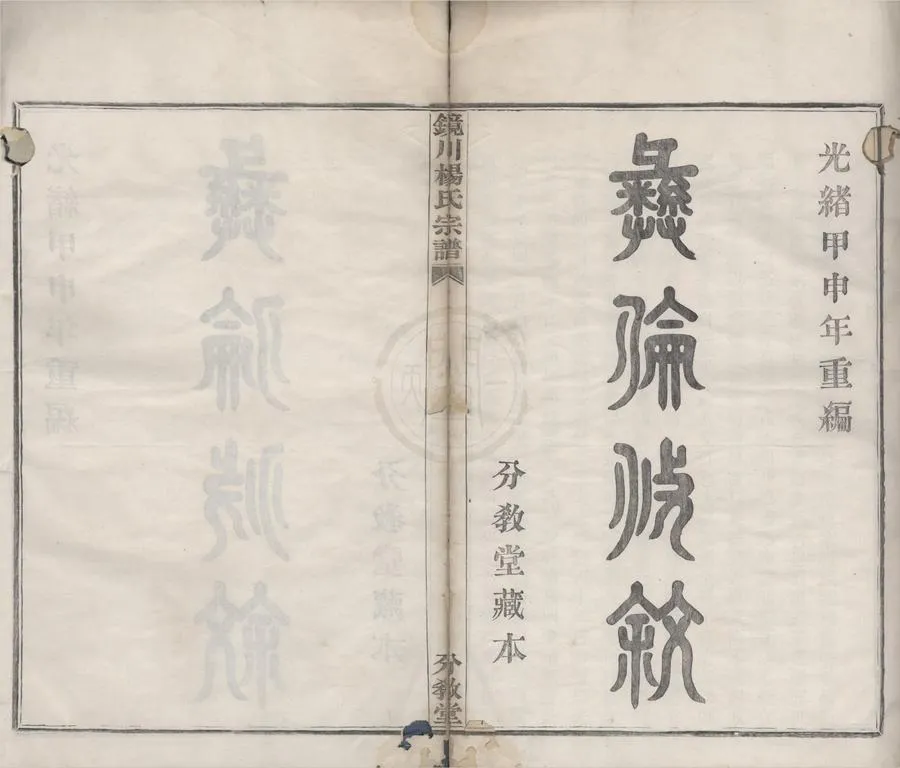 光緒甲申年重編
彝倫攸敘
分敎堂藏本
鏡川楊氏宗譜
分敎堂